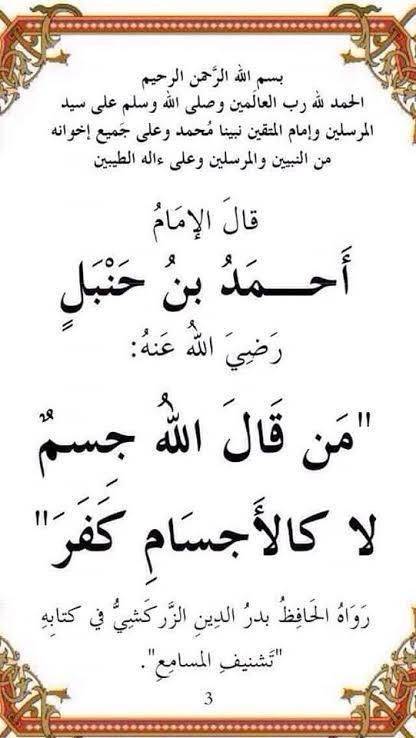 بسم الله الرَّحمن الرحيم
الحمد لله رب العالَمين وصلى الله وسلم على سيد
المرسلين وإمام المتقين نبينا مُحمد وعلى جَميع إخوانه
من النبيين والمرسلين وعلى ءاله الطيبين
قالَ الإمَامُ
أَحـــمَدُ بنُ حَنْبَلٍ
رَضِيَ اللهُ عَنهُ:
"مَن قَالَ اللهُ جِسمٌ
لا كالأَجسَامِ كَفَرَ"
رَوَاهُ الحَافِظُ بدرُ الدِينِ الزَّركَشِيُّ في كتابِهِ
"تَشنيف المسامِعِ".
3